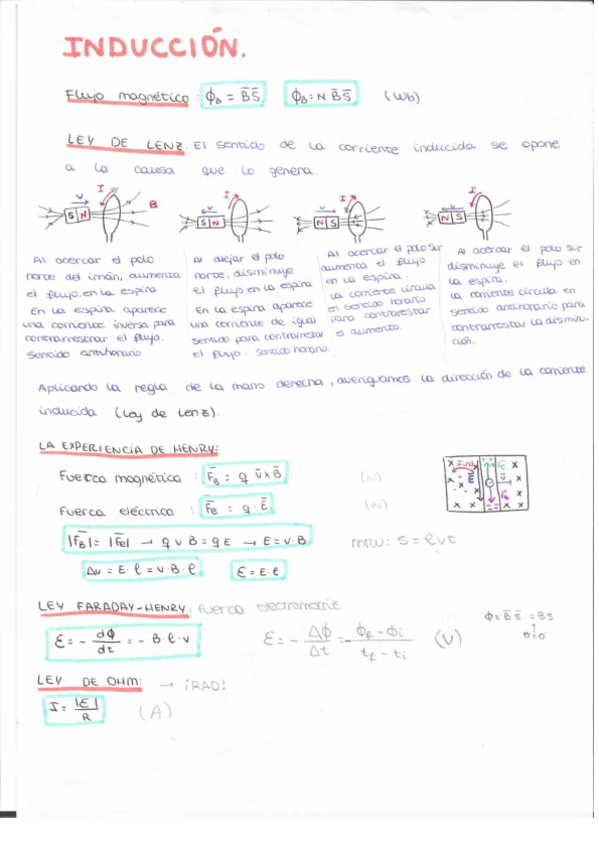 INDUCCIÓN.
Flujo magnético: ϕ_B = B̄ S̄   ϕ_B = N B̄ S̄   (Wb)
LEY DE LENZ. El sentido de la corriente inducida se opone
a la causa que lo genera.
I   I   I   I
v   B   v   v   v
S N   S N   N S   N S
Al acercar el polo
norte del imán, aumenta
el flujo en la espira
En la espira aparece
una corriente inversa para
contrarrestrar el flujo.
Sentido antihorario
Al alejar el polo
norte, disminuye
el flujo en la espira
En la espira aparece
una corriente de igual
sentido para contrarrestar
el flujo. Sentido horario.
Al acercar el polo sur
aumenta el flujo
en la espira.
La corriente circula
en sentido horario
para contrarestar
el aumento.
Al acercar el polo sur
disminuye el flujo en
la espira.
La corriente circula en
sentido antihorario para
contrarrestar la disminu-
ción.
Aplicando la regla de la mano derecha, averiguamos la dirección de la corriente
inducida (Ley de Lenz).
LA EXPERIENCIA DE HENRY:
Fuerza magnética: F̄_B = q v̄ x B̄   (N)
Fuerza eléctrica: F̄e = q · Ē   (N)
|F̄_B| = |F̄e| → q v B = q E → E = v·B   MRU: S = l v t
Δv = E · l = v · B · l   ε = E · l
LEY FARADAY-HENRY: fuerza electromotriz
ε = - dϕ/dt = - B · l · v   ε = - Δϕ/Δt = - ϕf - ϕi / tf - ti   (V)
ϕ = B̄ · S̄ = B S
θ = 0°
LEY DE OHM: → ¡RAD!
I = |ε|/R   (A)